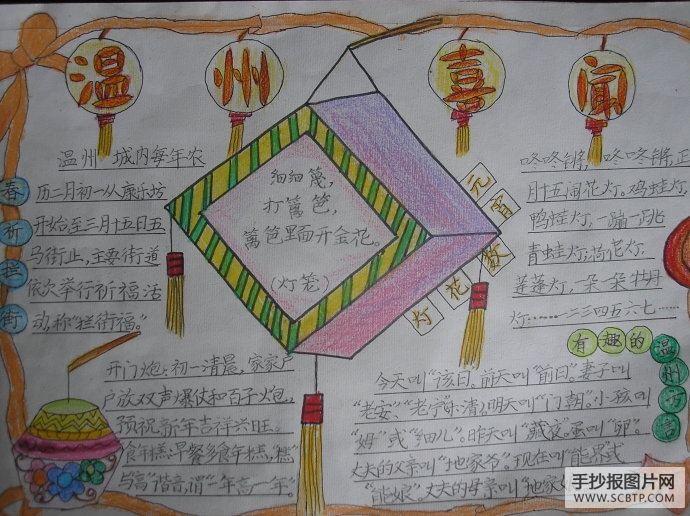 温州喜闻
温州城内每年农
历二月初一从康乐坊
开始至三月十五日五
马街止,主要街道
依次举行祈福活
动,称“拦街福。”
春祈拦街
细细篾,
打篱笆,
篱笆里面开金花。
(灯笼)
元宵
灯花数
咚咚锵,咚咚锵,正
月十五闹花灯。鸡蛙灯,
鸭蛙灯,一蹦一跳
青蛙灯;荷花灯,
莲莲灯,一朵一朵牡丹
灯……一二三四五六七……
开门炮:初一清晨,家家户
户放双声爆仗和百子炮,
预祝新年吉祥兴旺。
食年糕:早餐多食年糕,“糕”
与“高”谐音,谓“年高一年”。
有趣的
温州方言
今天叫“该日”。前天叫“前日”。妻子叫
明天叫“门朝”。小孩叫
“姆”或“细儿”。昨天叫“藏夜”。蛋叫“卵”。
丈夫的父亲叫“地家爷”。现在叫“能界”或
“能娘”。丈夫的母亲叫“地家
手抄报图片网
WWW.SCBTP.COM